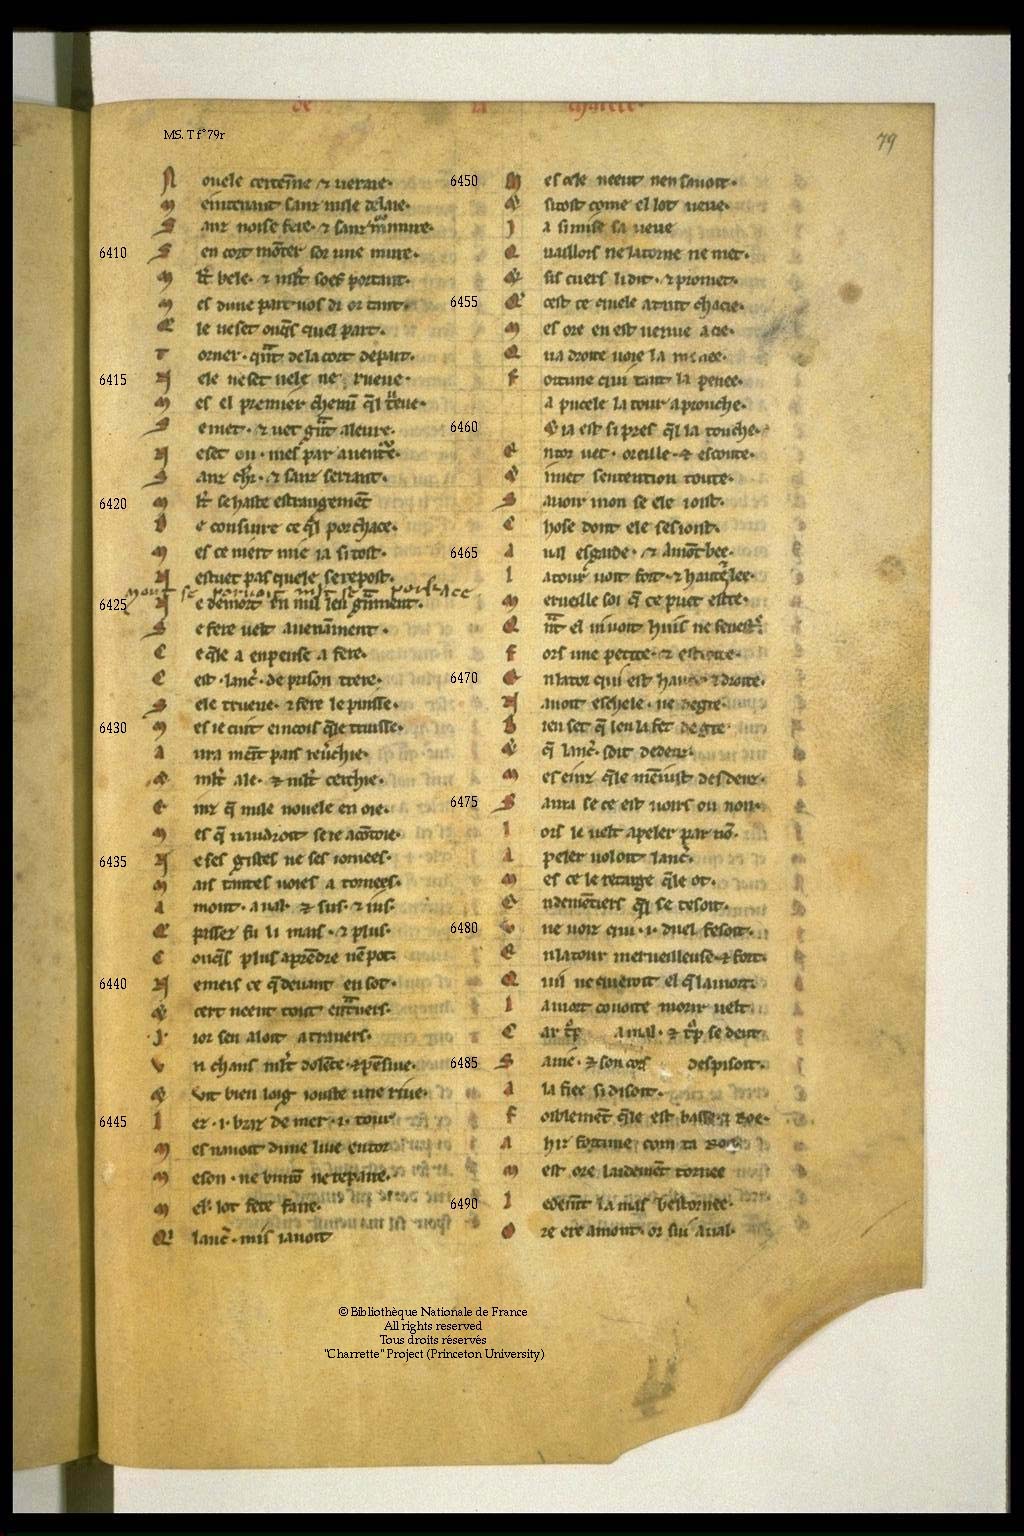 de la charete
MS. T f°79r
79
N ouele certeīne ⁊ ueraie·
M eintenant sanz nule delaie·
S anz noise fere· ⁊ sanz murmure·
6410 S en cort mōter sor une mure·
M lt̄ bele· ⁊ mlt̄ soef portant·
M es dune part uos di or tant·
E le ne set onq̄s quel part·
T orner· qn̄t de la cort depart·
6415 N ele ne set nele ne rueue·
M es el premier chemī q̄l trueue·
S emet· ⁊ uet gn̄t aleure·
N eset ou· mes par auentē·
S anz chr̄· ⁊ sanz seriant·
6420 M lt̄ se haste estrangemēt
D e consuure ce q̄l porchace·
M es ce niert mie ia si tost·
N estuet pas quele se repost·
6425 N e demort en nul leu grīment·
S e fere uelt auenāment·
C e q̄le a enpense a fere·
C est· lanc̄· de prison trere·
S ele trueue· ⁊ fere le puisse·
6430 M es ie cuit eincois q̄le truisse·
A ura meīt pais reuchie·
mlt̄ ale· ⁊ mlt̄ cerchie·
E inz q̄ nule nouele en oie·
M es q̄ uaudroit se ie acōtoie·
6435 N e ses gistes ne ses iornees·
M ais tantes uoies a tornees·
A mont· aual· ⁊ sus· ⁊ ius·
Q passez fu li mais· ⁊ plus·
C onq̄s plus aprēdre nē pot·
6440 N emeis ce q̄ deuant en sot·
Q cert neent tout entuers·
·I· ior sen aloit a trauers·
V n chans mlt̄ dolēte ⁊ pēsiue·
Q Vit bien loig iouste une riue·
6445 L ez ·i· braz de mer ·i· tour
M es nauoit dune liue entor
M eson· ne buirō ne repaire·
M el· lot fete faire·
Q lanc̄· mis iauoit
6450 M es cele neent nen sauoit·
Q si tost come el lot ueue·
I a si mise sa ueue
Q uaillors ne latorne ne met·
Q sis cuers li dit· ⁊ promet·
6455 Q cest ce quele a tant chacie·
M es ore en est uenue a cie·
Q ua droite uoie la menee·
F ortune qui tant la penee·
a pucele la tour aprouche·
6460 Q ia est si pres q̄l la touche·
E ntor uet· oreille· ⁊ escoute·
Q i met sentention toute·
S auoir mon se ele i oist·
C hose dont ele sesioist·
6465 A ual esgarde· ⁊ amōt bee·
L a tour uoit fort· ⁊ haute ⁊ lee·
M erueille soi q̄ ce puet estre·
Q nt̄ el ni uoit huis ne fenest̄·
F ors une petite· ⁊ estroite·
6470 E n la tor qui est haute ⁊ droite·
N auoit eschele· ne degre·
B ien set q̄ len la fet de gre
Q q̄ lanc̄· soit dedenz·
M es einz q̄le mēiust des denz·
6475 S aura se ce est uoirs ou non·
L ors le uelt apeler par nō·
A peler uoloit lanc̄·
M es ce le retarge q̄le ot·
E ndemētiers q̄l se tesoit·
6480 V ne uoiz qui ·i· duel fesoit·
E n la tour merueilleuse ⁊ fort·
Q uil ne queroit el q̄ la mort·
L a mort couoite morir uelt·
C ar tp̄ a mal· ⁊ tp̄ se deut
6485 S a uie· ⁊ son cors despisoit·
A la fiee si disoit·
F oiblemēt q̄le est basse ⁊ roe·
A hiz fortune com ta roe
M est ore laidemēt tornee
6490 L edemt̄ la mas bestornee·
O re ere amont· or sui aual·
© Bibliothèque Nationale de France
All rights reserved
Tous droits réservés
"Charrette" Project (Princeton University)